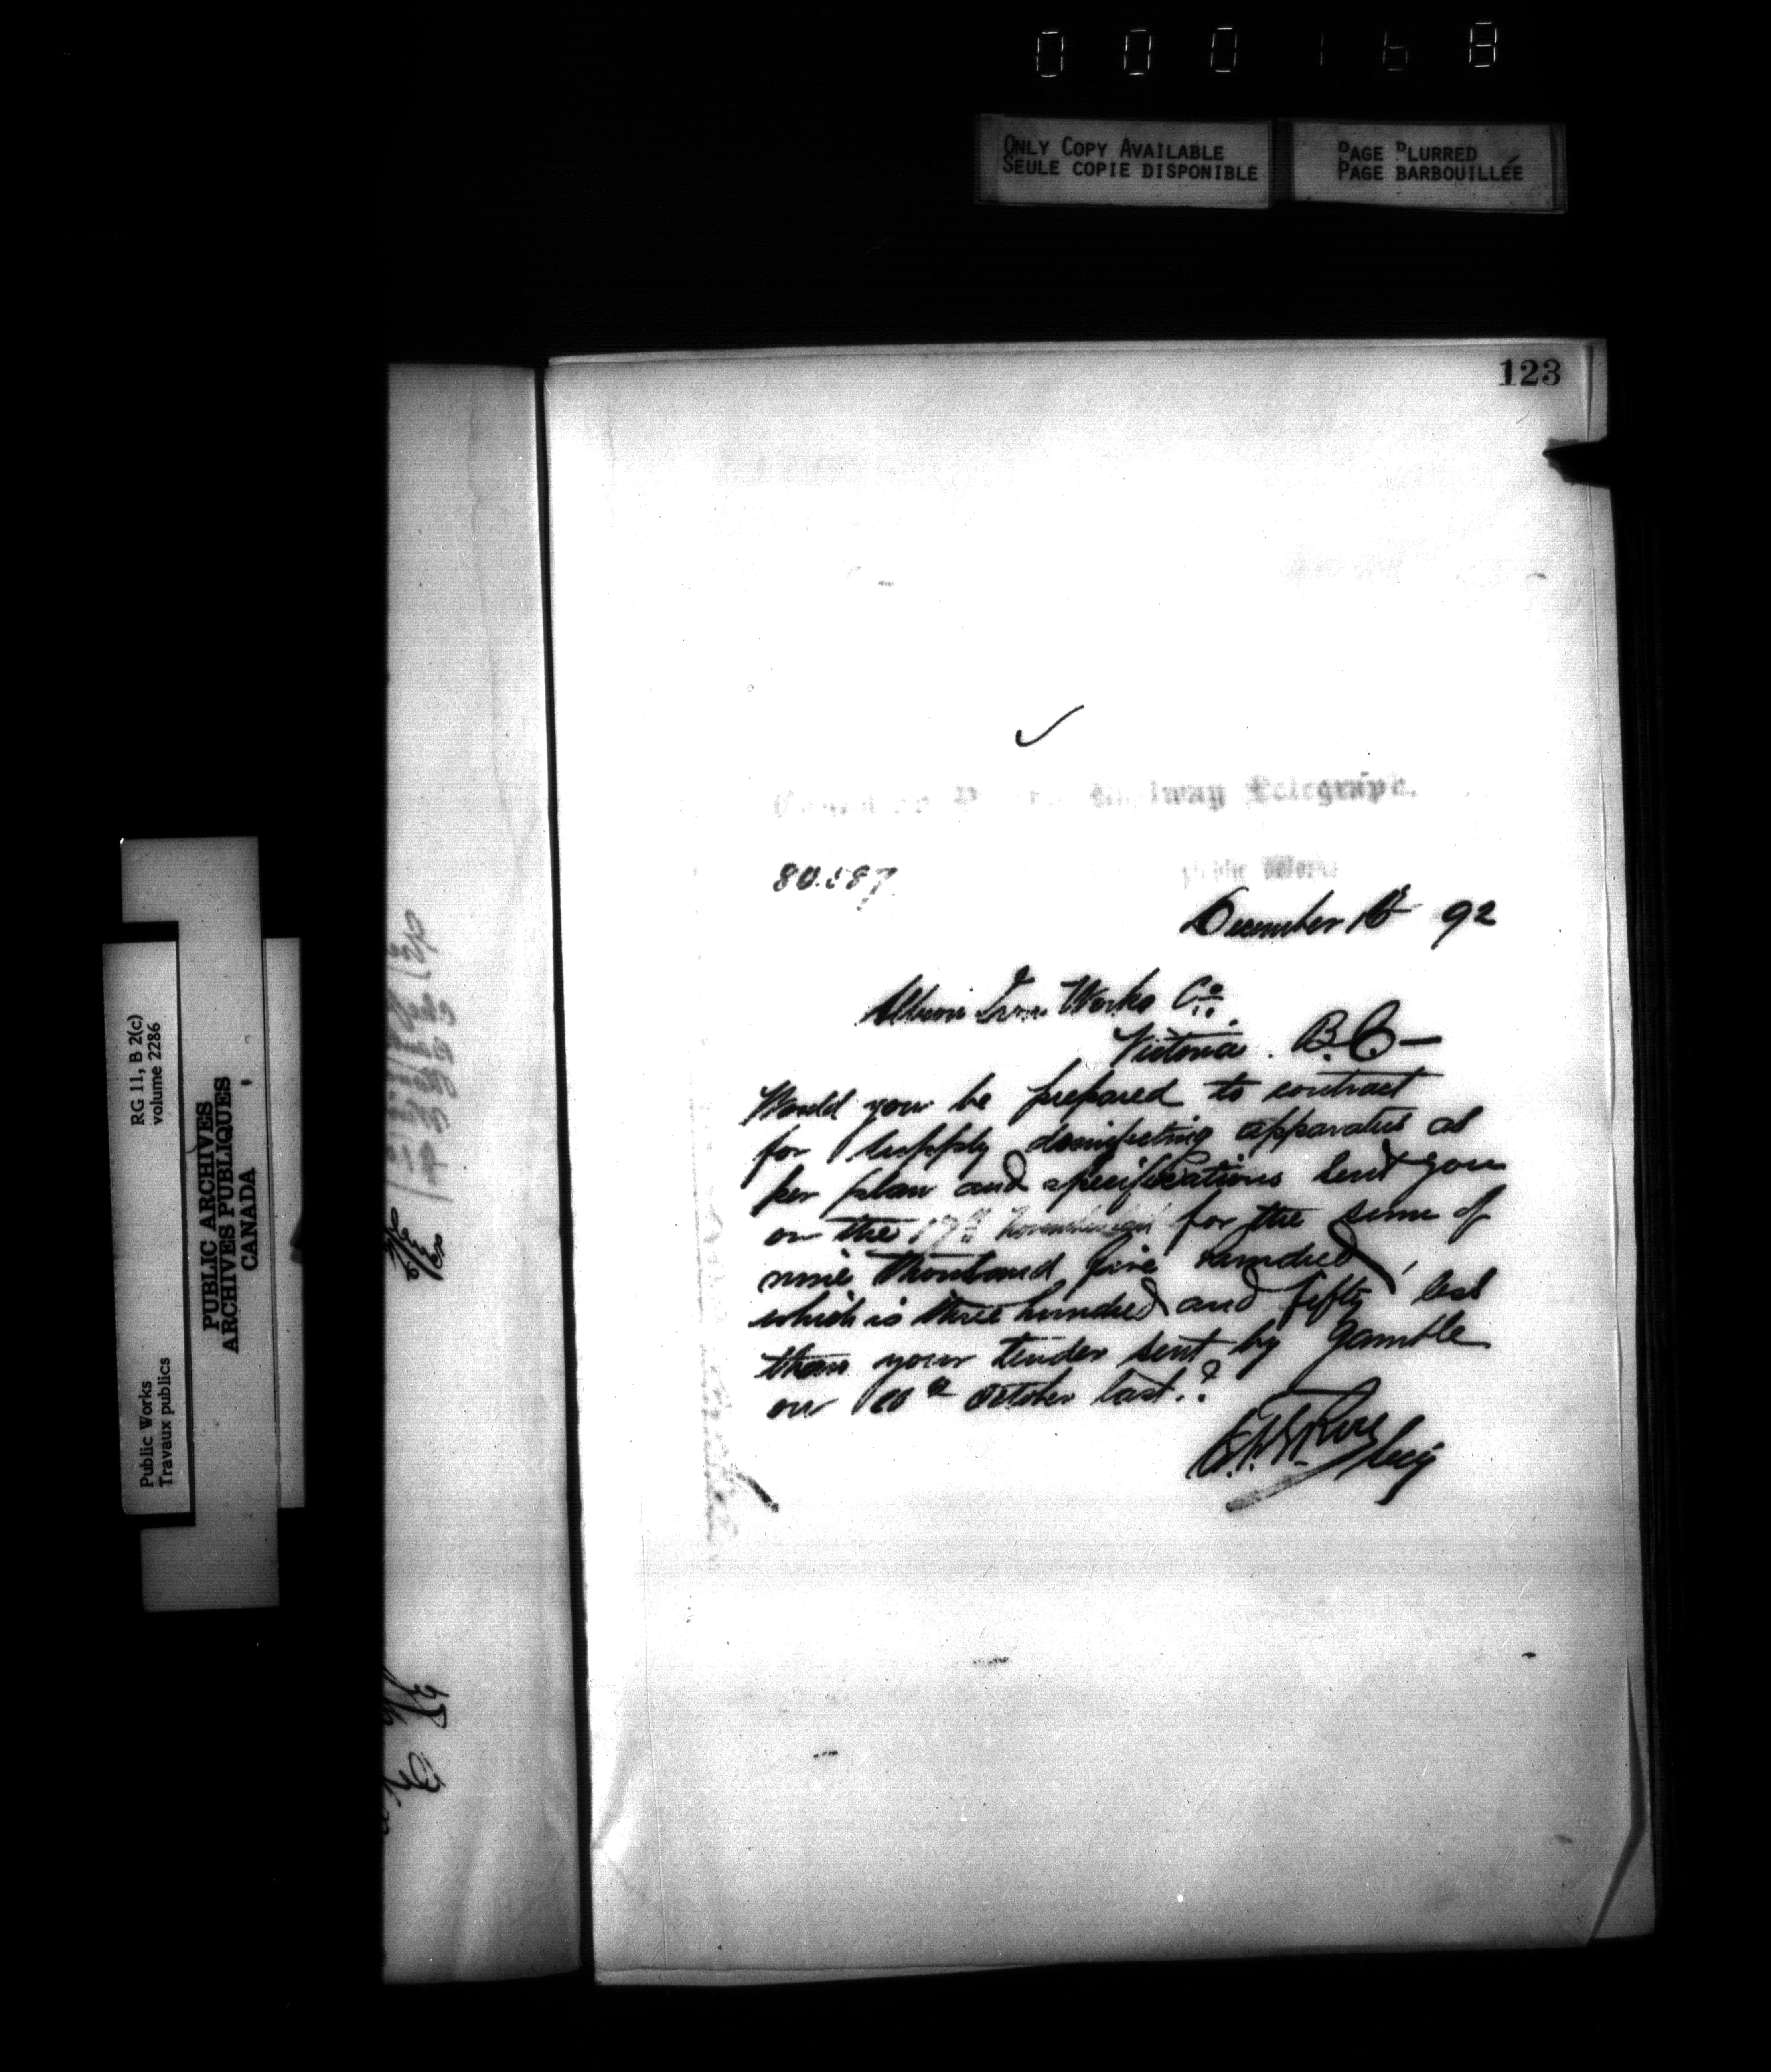 0 0 0 1 6 8
ONLY COPY AVAILABLE
SEULE COPIE DISPONIBLE
PAGE BLURRED
PAGE BARBOUILLÉE
123
Railway Telegraph.
80587
Public Works
December 92
Albion Iron Works Co.
Victoria. B.C —
Would you be prepared to contract
for supply disinfecting apparatus as
per plan and specifications sent you
on the 17th November for the sum of
nine thousand five hundred,
which is three hundred and fifty less
than your tender sent by Gamble
on October last.?
Secy
RG 11, B 2(c)
volume 2286
PUBLIC ARCHIVES
ARCHIVES PUBLIQUES
CANADA
Public Works
Travaux publics